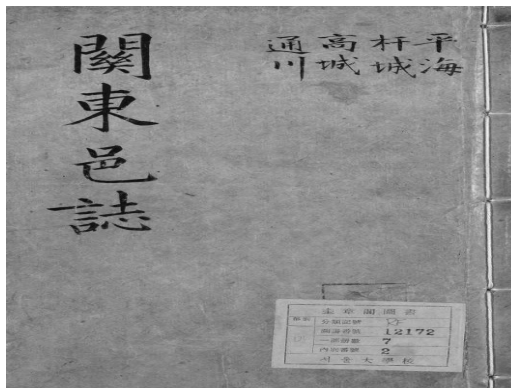 平海
杆城
高城
通川
關東邑誌
奎章閣圖書
圖書番號 12172
7
2
서울大學校